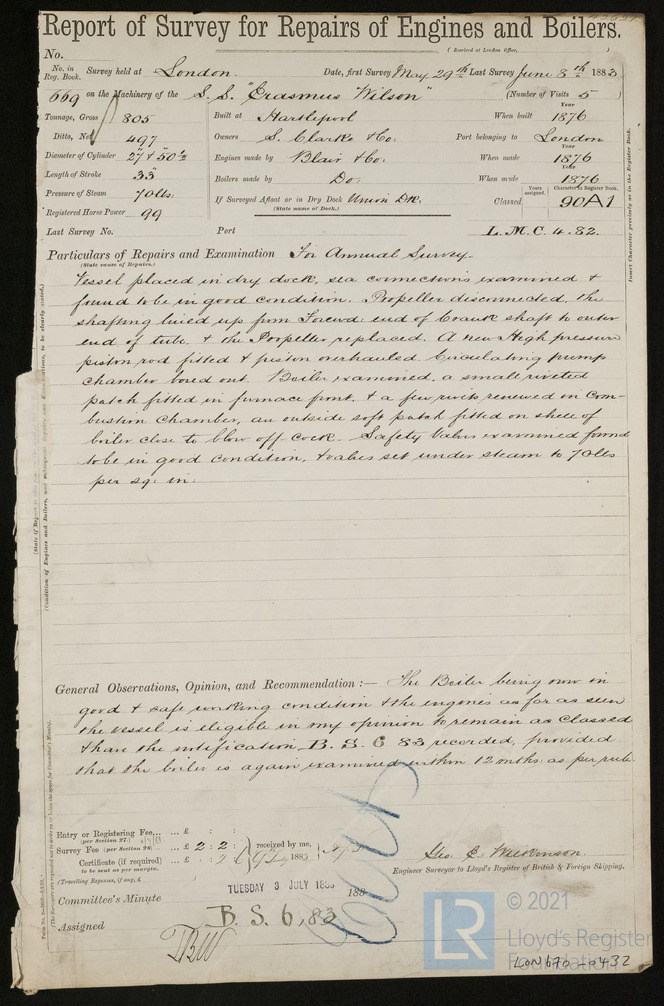 Report of Survey for Repairs of Engines and Boilers.
No.
(Received at London Office,
No. in Reg. Book. Survey held at London. Date, first Survey May 29th Last Survey June 8th 1883
669 on the Machinery of the S.S. "Erasmus Wilson" (Number of Visits 5)
Tonnage, Gross 805 Built at Hartlepool When built Year 1876
Ditto, Net 497 Owners S. Clarke & Co. Port belonging to London
Diameter of Cylinder 27" & 50½ Engines made by Blair & Co. When made Year 1876
Length of Stroke 33" Boilers made by Do. When made Year 1876
Pressure of Steam 70lbs. If Surveyed Afloat or in Dry Dock Union Dk. Classed Years assigned. Character in Register Book. 90A1
(State name of Dock.)
Registered Horse Power 99
Last Survey No. Port L.M.C. 4.82.
Particulars of Repairs and Examination For Annual Survey.
(State cause of Repairs.)
Vessel placed in dry dock, sea connections examined &
found to be in good condition. Propeller disconnected, the
shafting lined up from Forwd end of Crank shaft to outer
end of tube, & the Propeller replaced. A new High pressure
piston rod fitted & piston overhauled Circulating pump
chamber bored out. Boiler examined, a small riveted
patch fitted in furnace front, & a few rivets renewed in Com-
bustion Chamber, an outside soft patch fitted on shell of
boiler close to blow off cock. Safety Valves examined found
to be in good condition, & valves set under steam to 70lbs
per sq: in:
General Observations, Opinion, and Recommendation :— The Boiler being now in
good & safe working condition & the engines as far as seen
the vessel is eligible in my opinion to remain as Classed
& have the notification B.S. 6 83 recorded, provided
that the boiler is again examined within 12 mths: as per rule
Entry or Registering Fee... ... £ : :
(per Section 27.)
Survey Fee (per Section 28) ... £ 2 : 2 : received by me,
Certificate (if required) ... £ : : 1883
(to be sent as per margin.
(Travelling Expenses, if any, £
Geo. C. Wilkinson
Engineer Surveyor to Lloyd's Register of British & Foreign Shipping.
Committee's Minute TUESDAY 3 JULY 1883 188
Assigned B.S. 6,83
Insert Character precisely as in the Register Book.
© 2021
LR
Lloyd's Register
Foundation
LON670-0432